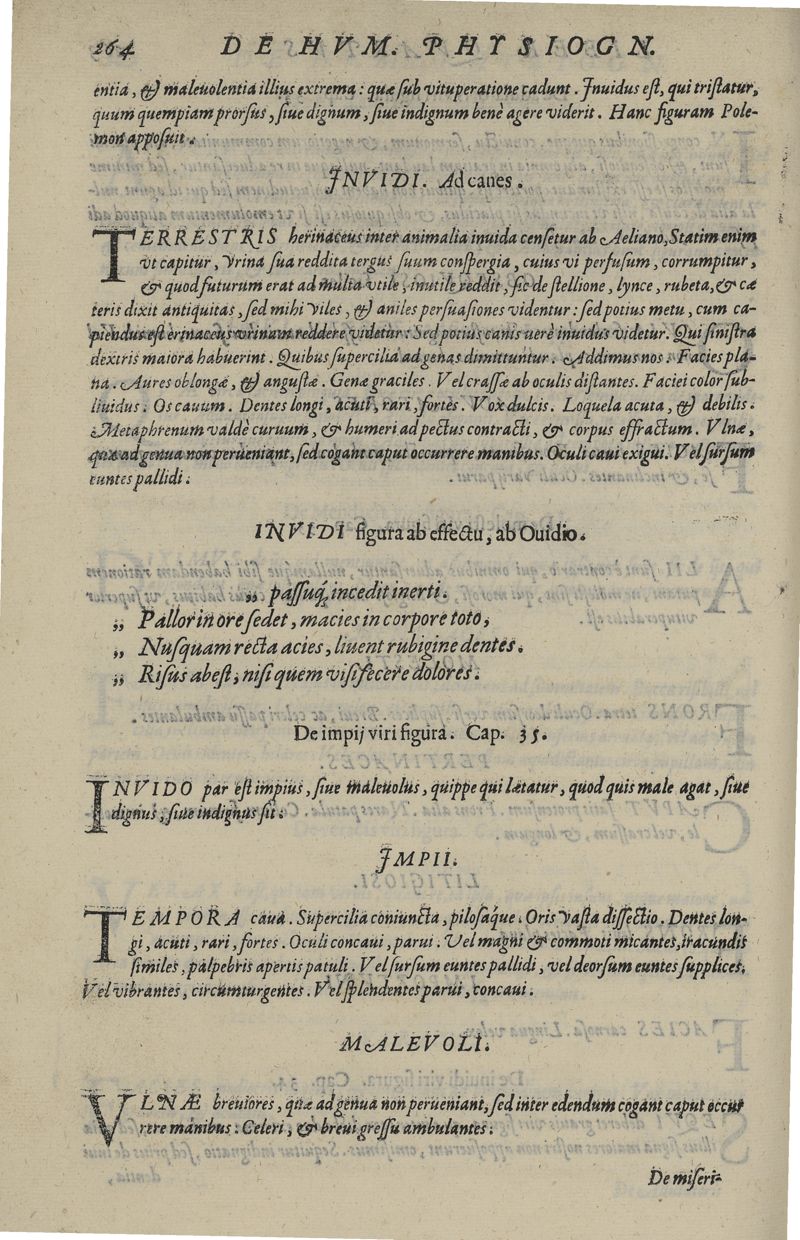 264 DE HVM. PHYSIOGN.
entia, & maleuolentia illius extrema: quæ ſub vituperatione cadunt. Inuidus eſt, qui triſtatur,
quum quempiam prorſus, ſiue dignum, ſiue indignum benè agere viderit. Hanc figuram Pole-
mon appoſuit.
INVIDI. Ad canes.
TERRESTRIS herinaceus inter animalia inuida cenſetur ab Aeliano, Statim enim
vt capitur, vrina ſua reddita tergus ſuum conſpergia, cuius vi perfuſum, corrumpitur,
& quod futurum erat ad multa vtile, inutile reddit, ſic de ſtellione, lynce, rubeta, & cæ
teris dixit antiquitas, ſed mihi viles, & aniles perſuaſiones videntur: ſed potius metu, cum ca-
piendus eſt erinaceus vrinam reddere videtur: Sed potius canis uerè inuidus videtur. Qui ſiniſtra
dextris maiora habuerint. Quibus ſupercilia ad genas dimittuntur. Addimus nos. Facies pla-
na. Aures oblongæ, & anguſtæ. Genæ graciles. Vel craſſæ ab oculis diſtantes. Faciei color ſub-
liuidus. Os cauum. Dentes longi, acuti, rari, fortes. Vox dulcis. Loquela acuta, & debilis.
Metaphrenum valdè curuum, & humeri ad pectus contracti, & corpus effractum. Vlnæ,
quæ ad genua non perueniant, ſed cogant caput occurrere manibus. Oculi caui exigui. Vel ſurſum
euntes pallidi.
INVIDI figura ab effectu, ab Ouidio.
„ paſſuq́; incedit inerti.
„ Pallor in ore ſedet, macies in corpore toto,
„ Nuſquam recta acies, liuent rubigine dentes.
„ Riſus abeſt, niſi quem viſi fecere dolores.
De impij viri figura. Cap. 35.
INVIDO par eſt impius, ſiue maleuolus, quippe qui lætatur, quod quis male agat, ſiue
dignus, ſiue indignus ſit.
IMPII.
TEMPORA caua. Supercilia coniuncta, piloſaq́ue. Oris vaſta diſſectio. Dentes lon-
gi, acuti, rari, fortes. Oculi concaui, parui. Vel magni & commoti micantes, iracundis
ſimiles, palpebris apertis patuli. Vel ſurſum euntes pallidi, vel deorſum euntes ſupplices.
Vel vibrantes, circumturgentes. Vel ſplendentes parui, concaui.
MALEVOLI.
VLNÆ breuiores, quæ ad genua non perueniant, ſed inter edendum cogant caput occur
rere manibus. Celeri, & breui greſſu ambulantes.
De miſeri-